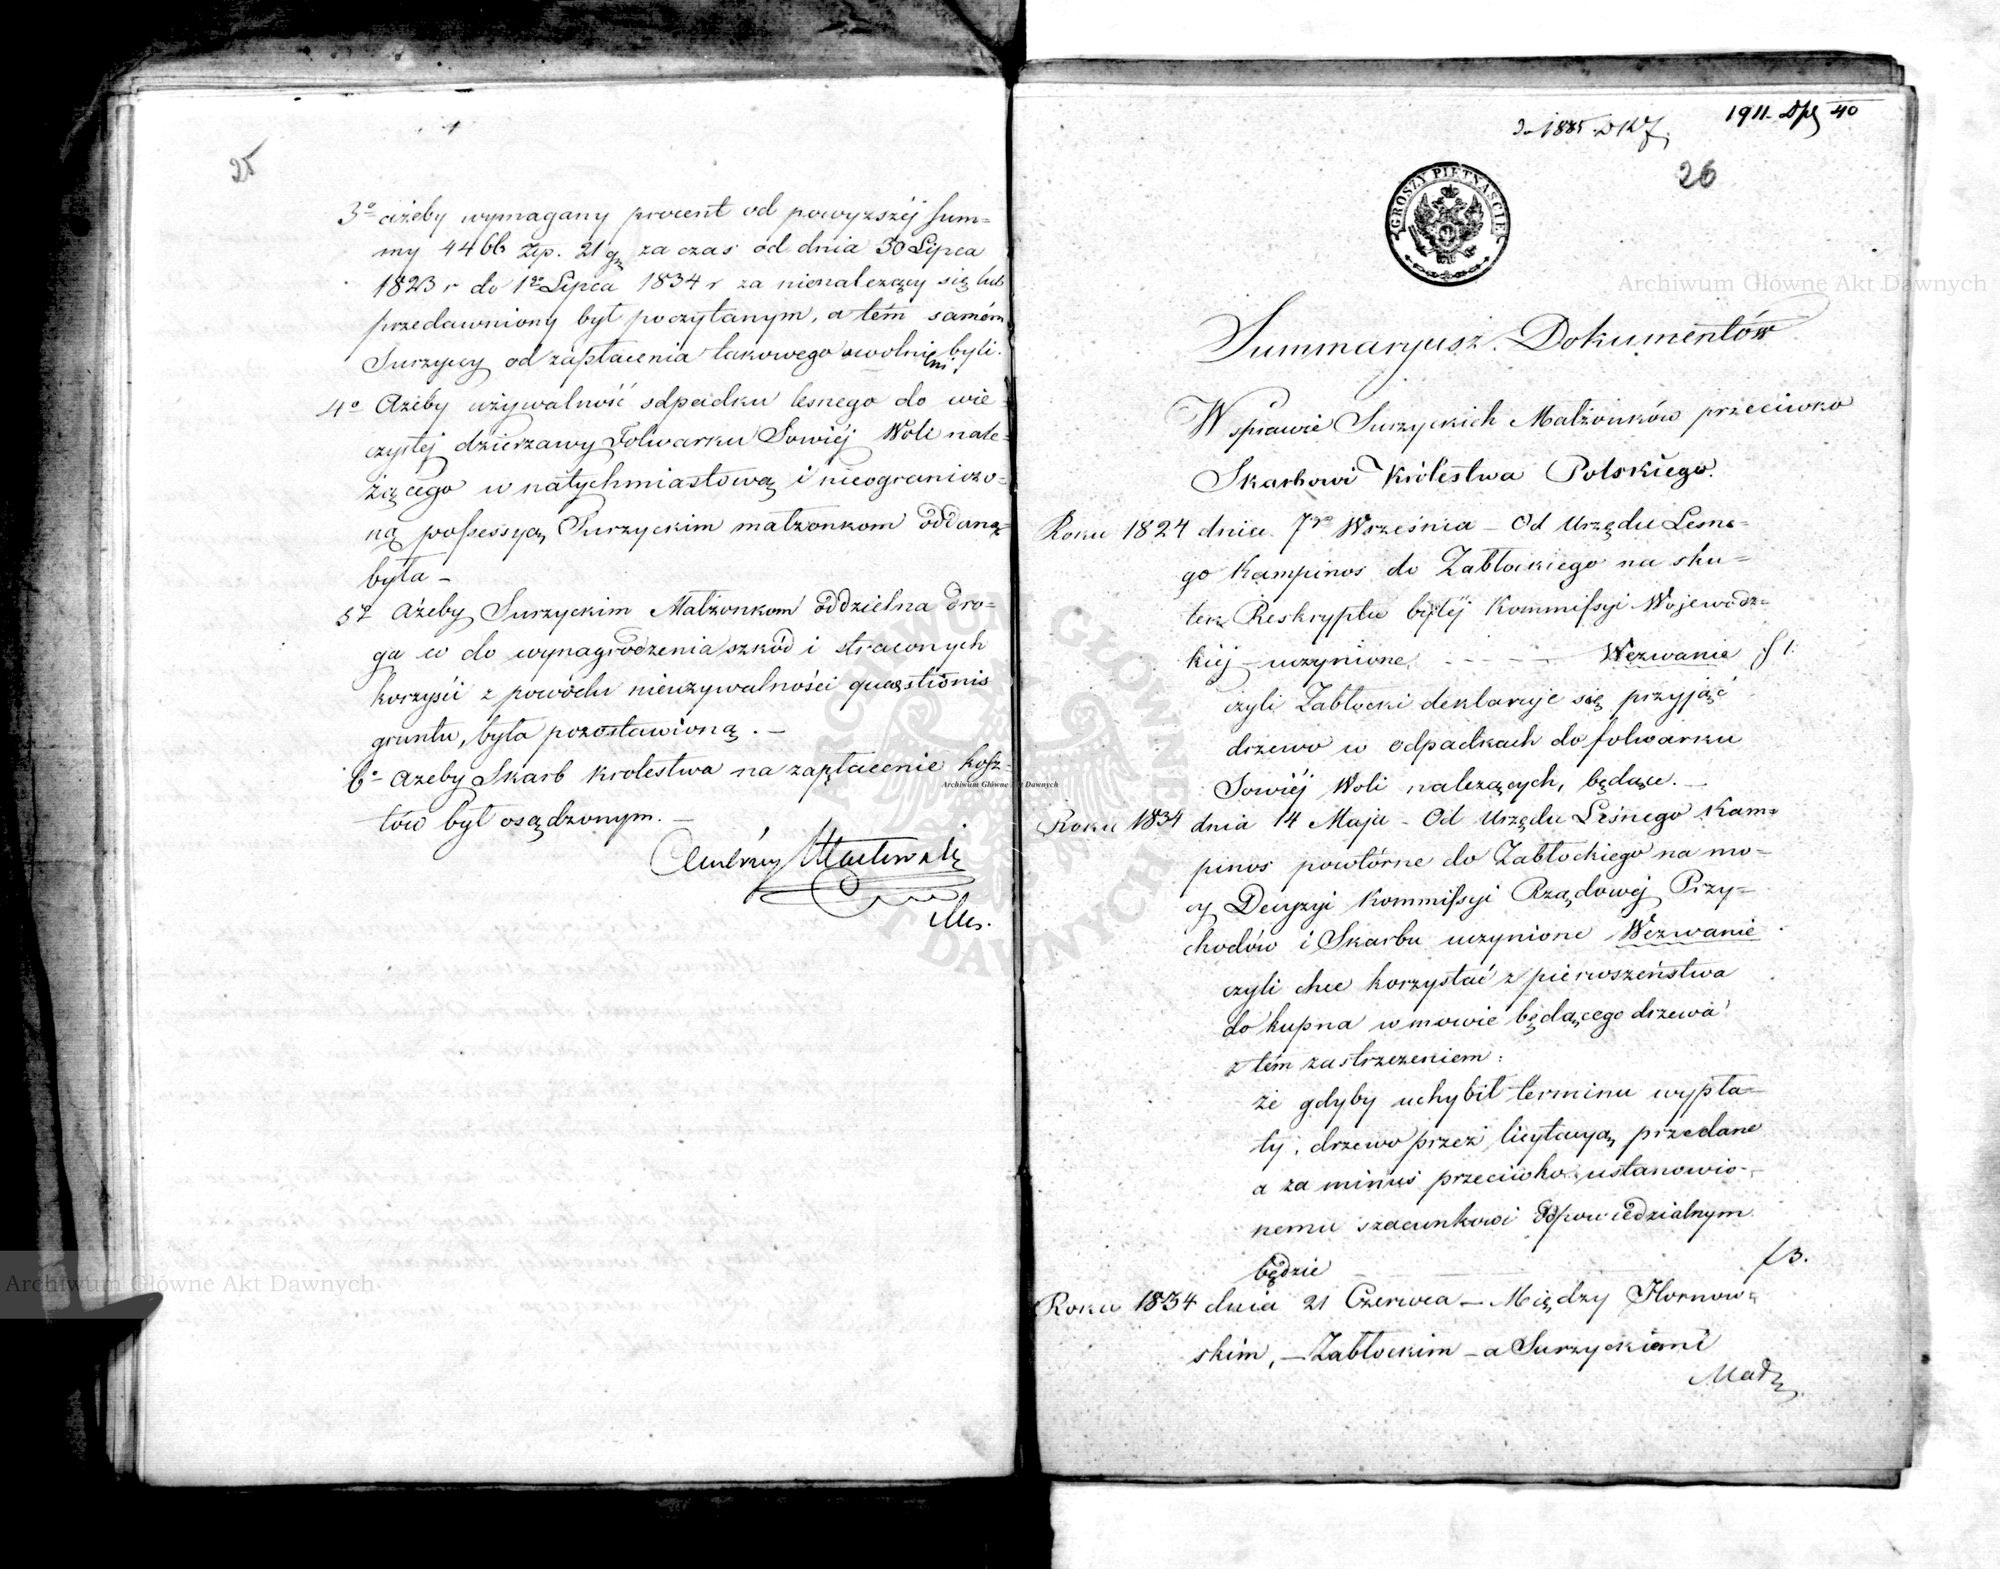 25
3º ażeby wymagany procent od powyższéj Sum=
my 4466 Złp. 21 gr za czas od dnia 30 Lipca
1823 r do 1º Lipca 1834 r za nienależący się lub
przedawniony był poczytanym, a tém samém
Surzyccy od zapłacenia takowego uwolnieni byli.
4º Ażeby używalność odpadku lesnego do wie=
czystéj dzierzawy Folwarku Sowiéj Woli nale=
żącego w natychmiastową i nieograniczo=
ną possessyą Surzyckim małżonkom oddaną
była –
5º Ażeby Surzyckim Małżonkom oddzielna dro=
ga w do wynagrodzenia szkód i straconych
korzyści z powodu nieużywalności quaestionis
gruntu, była pozostawioną. –
6º Ażeby Skarb Krolestwa na zapłacenie kosz=
tów był osądzonym. –
1911. 40
26
GROSZY PIĘTNAŚCIE
Summaryusz Dokumentów
W sprawie Surzyckich Małżonków przeciwko
Skarbowi Królestwa Polskiego.
Roku 1824 dnia 7go Września – Od Urzędu Lesne=
go Kampinos do Zabłockiego na sku=
tek Reskryptu byłéj Kommissyi Wojewódz=
kiéj uczynione, - - - - - Wezwanie f 1.
czyli Zabłocki deklaruje się przyjąć
drzewo w odpadkach do folwarku
Sowiéj Woli należących, będące. –
Roku 1834 dnia 14 Maja – Od Urzędu Leśnego Kam=
pinos powtórne do Zabłockiego na mo=
cy Decyzyi Kommissyi Rządowéj Przy=
chodów i Skarbu uczynione Wezwanie
czyli chce korzystać z pierwszeństwa
do kupna w mowie będącego drzewa
z tém zastrzeżeniem:
że gdyby uchybił terminu wypła=
ty, drzewo przez licytacyą przedane
a za minus przeciwko ustanowio=
nemu szacunkowi odpowiedzialnym
będzie f 3.
Roku 1834 dnia 21 Czerwca – Między Hornow=
skim, – Zabłockim – a Surzyckiemi
Archiwum Główne Akt Dawnych
Archiwum Główne Akt Dawnych
Archiwum Główne Akt Dawnych
ARCHIWUM GŁÓWNE AKT DAWNYCH